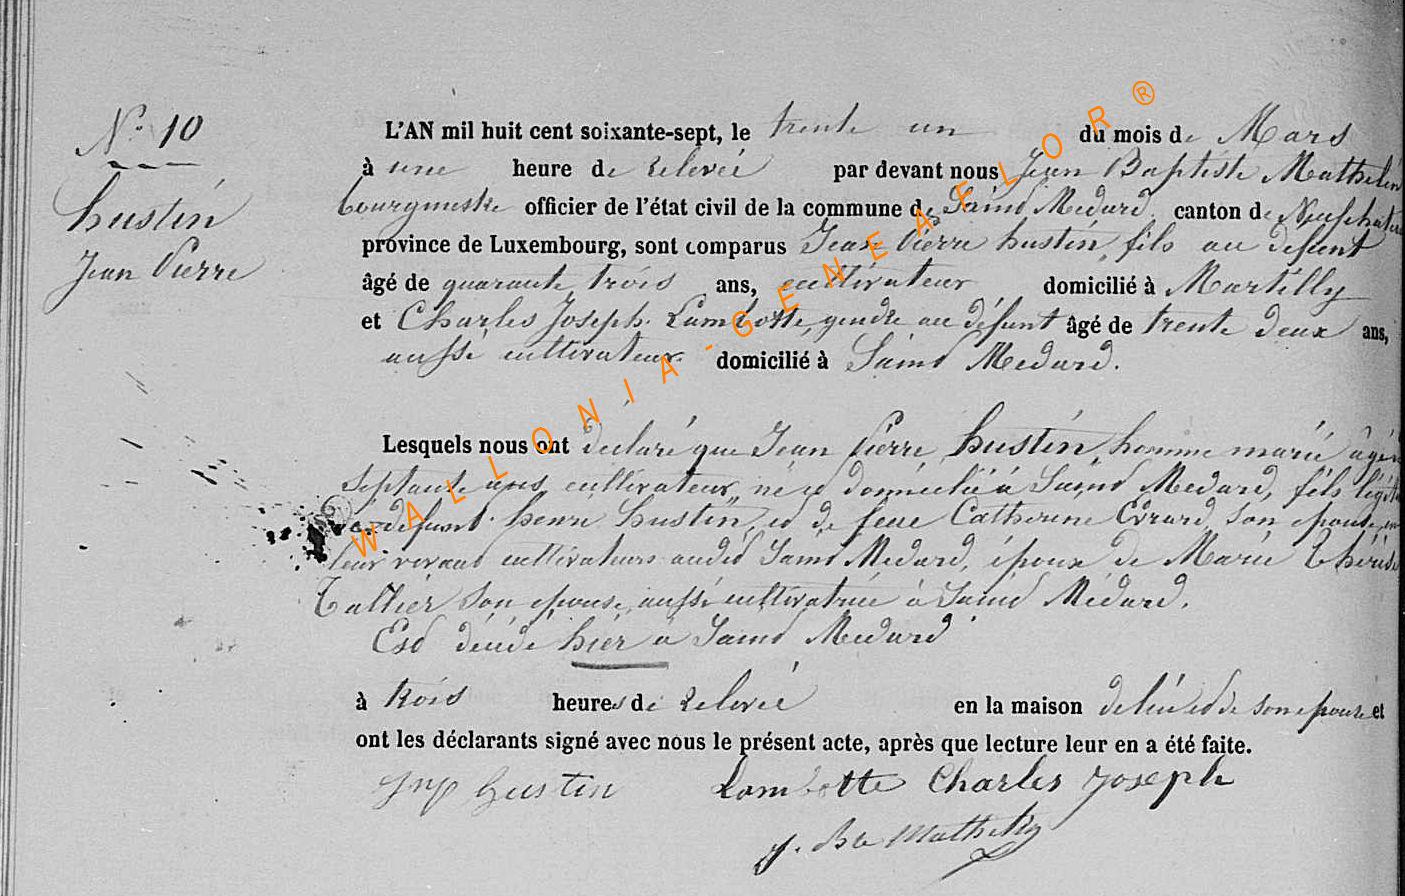 N° 10
hustin
Jean Pierre
L'AN mil huit cent soixante-sept, le trente un du mois de Mars
à une heure de relevée par devant nous Jean Baptiste Mathelin
bourgmestre officier de l'état civil de la commune de Saint Medard, canton de Neufchateau
province de Luxembourg, sont comparus Jean Pierre hustin, fils au défunt
âgé de quarante trois ans, cultivateur domicilié à Martilly
et Charles Joseph Lambotte, gendre au défunt âgé de trente deux ans,
aussi cultivateur domicilié à Saint Medard.
Lesquels nous ont déclaré que Jean Pierre hustin, homme marié âgé
septante ans, cultivateur, né et domicilié à Saint Medard, fils
défunt henri hustin, et de feue Catherine Evrard, son épouse, en
leur vivant cultivateurs audit Saint Medard, époux de Marie thérèse
tallier son épouse, aussi cultivatrice à Saint Médard.
Est décédé hier à Saint Medard
à trois heures de relevée en la maison de lui et de son epouse et
ont les déclarants signé avec nous le présent acte, après que lecture leur en a été faite.
Jnp Hustin Lambotte Charles Joseph
J. Bte Mathelin
WALLONIA-GENEAFLOR®